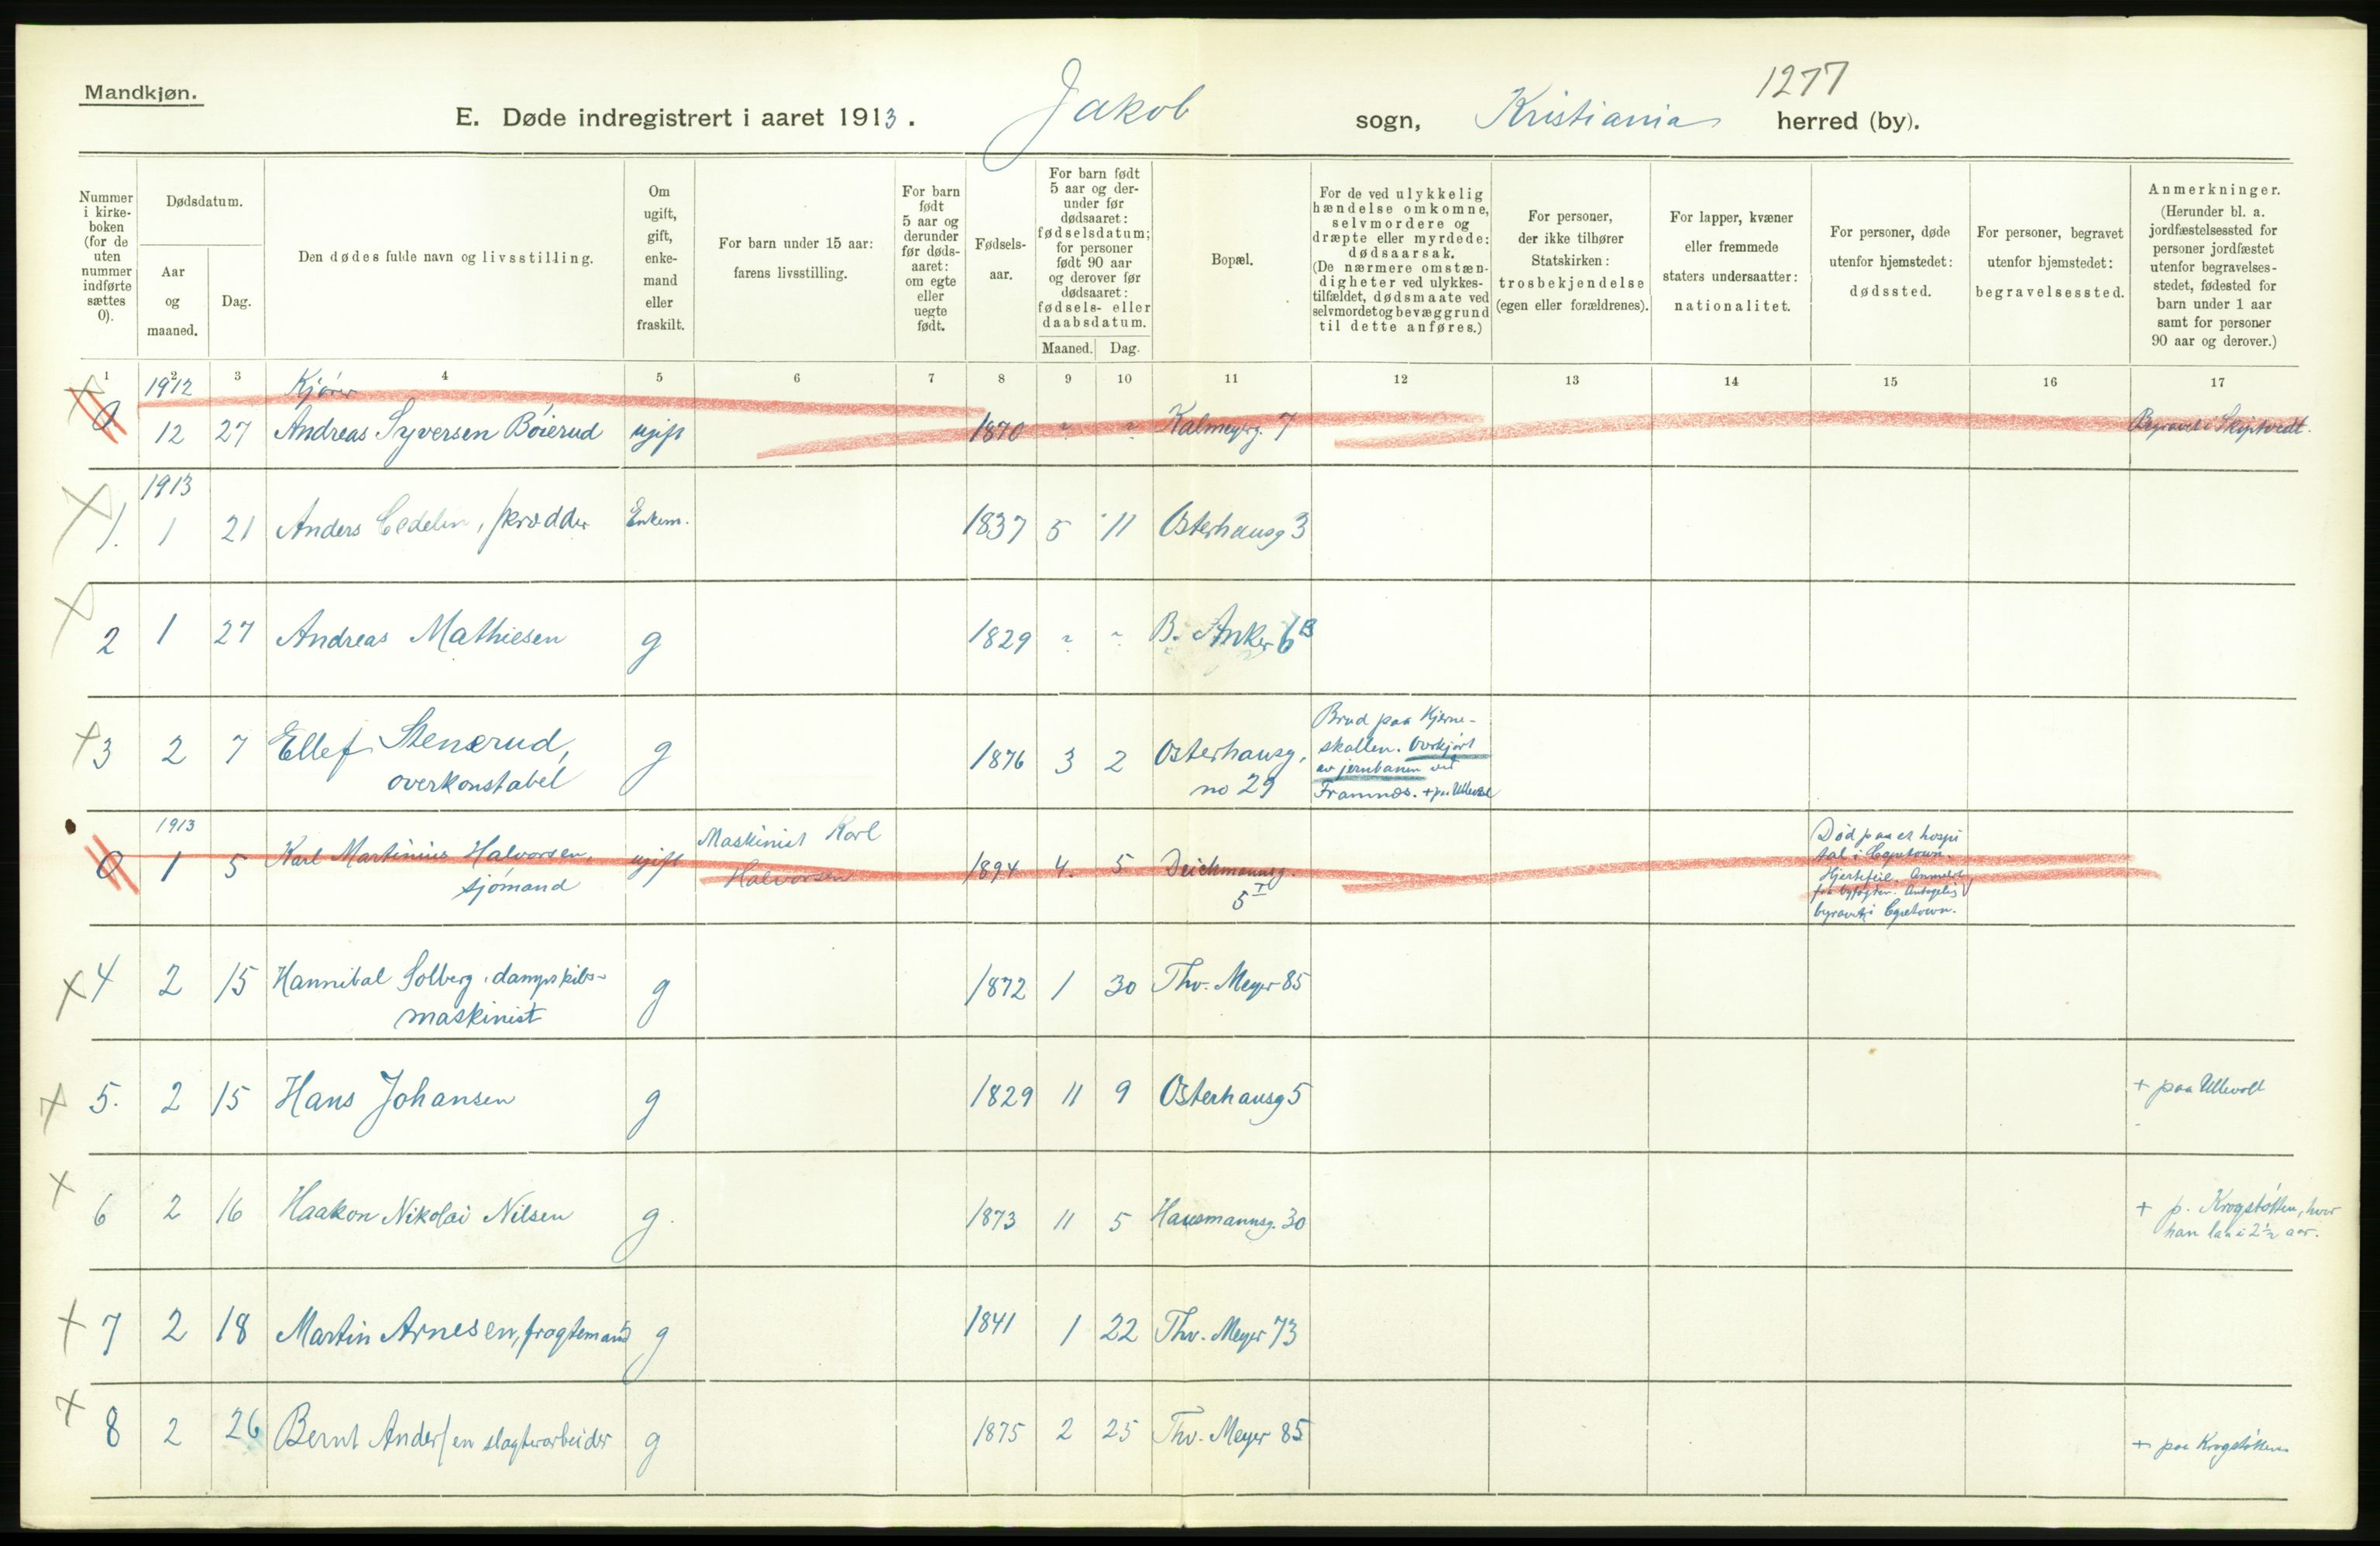 Mandkjøn.
1277
E. Døde indregistrert i aaret 1913. Jakob sogn, Kristiania herred (by).
Nummer i kirke-boken (for de uten nummer indførte sættes 0).
Dødsdatum.
Aar og maaned.
Dag.
Den dødes fulde navn og livsstilling.
Om ugift, gift, enke-mand eller fraskilt.
For barn under 15 aar: farens livsstilling.
For barn født 5 aar og derunder før døds-aaret: om egte eller uegte født.
Fødsels-aar.
For barn født 5 aar og der-under før dødsaaret: fødselsdatum; for personer født 90 aar og derover før dødsaaret: fødsels- eller daabsdatum.
Maaned. Dag.
Bopæl.
For de ved ulykkelig hændelse omkomne, selvmordere og dræpte eller myrdede: dødsaarsak. (De nærmere omstæn-digheter ved ulykkes-tilfældet, dødsmaate ved selvmordet og bevæggrund til dette anføres.)
For personer, der ikke tilhører Statskirken: trosbekjendelse (egen eller forældrenes).
For lapper, kvæner eller fremmede staters undersaatter: nationalitet.
For personer, døde utenfor hjemstedet: dødssted.
For personer, begravet utenfor hjemstedet: begravelsessted.
Anmerkninger. (Herunder bl. a. jordfæstelsessted for personer jordfæstet utenfor begravelses-stedet, fødested for barn under 1 aar samt for personer 90 aar og derover.)
1 2 3 4 5 6 7 8 9 10 11 12 13 14 15 16 17
1912 Kjører
0 12 27 Andreas Syversen Bøierud ugift 1870 " " Kalmeyerg. 7 Begravet i Skiptvedt.
1913
1. 1 21 Anders Cedelin, skrædder Enkem. 1837 5 11 Osterhausg 3
2 1 27 Andreas Mathiesen g 1829 " " B. Anker 6B
3 2 7 Ellef Stenerud, overkonstabel g 1876 3 2 Osterhausg. no 29 Brud paa Hjerne-skallen. Overkjørt av jernbanen ved Framnæs. + paa Ullevaal
1913
0 1 5 Karl Martinius Halvorsen, sjømand ugift Maskinist Karl Halvorsen 1894 4. 5 Deichmannsg. 5 I Død paa et hospital i Capetown. Hjertefeil. Anmeldt fra byfogden. Antagelig begravet i Capetown.
4 2 15 Hannibal Solberg, dampskibs-maskinist g 1872 1 30 Thv. Meyer 85
5. 2 15 Hans Johansen g 1829 11 9 Osterhausg 5 + paa Ullevold
6 2 16 Haakon Nikolai Nilsen g. 1873 11 5 Hausmannsg. 30 + p. Krogstøtten, hvor han laa i 2½ aar.
7 2 18 Martin Arnesen, fragtemand g 1841 1 22 Thv. Meyer 73
8 2 26 Bernt Andersen slagterarbeider g 1875 2 25 Thv. Meyer 85 + paa Krogstøtten